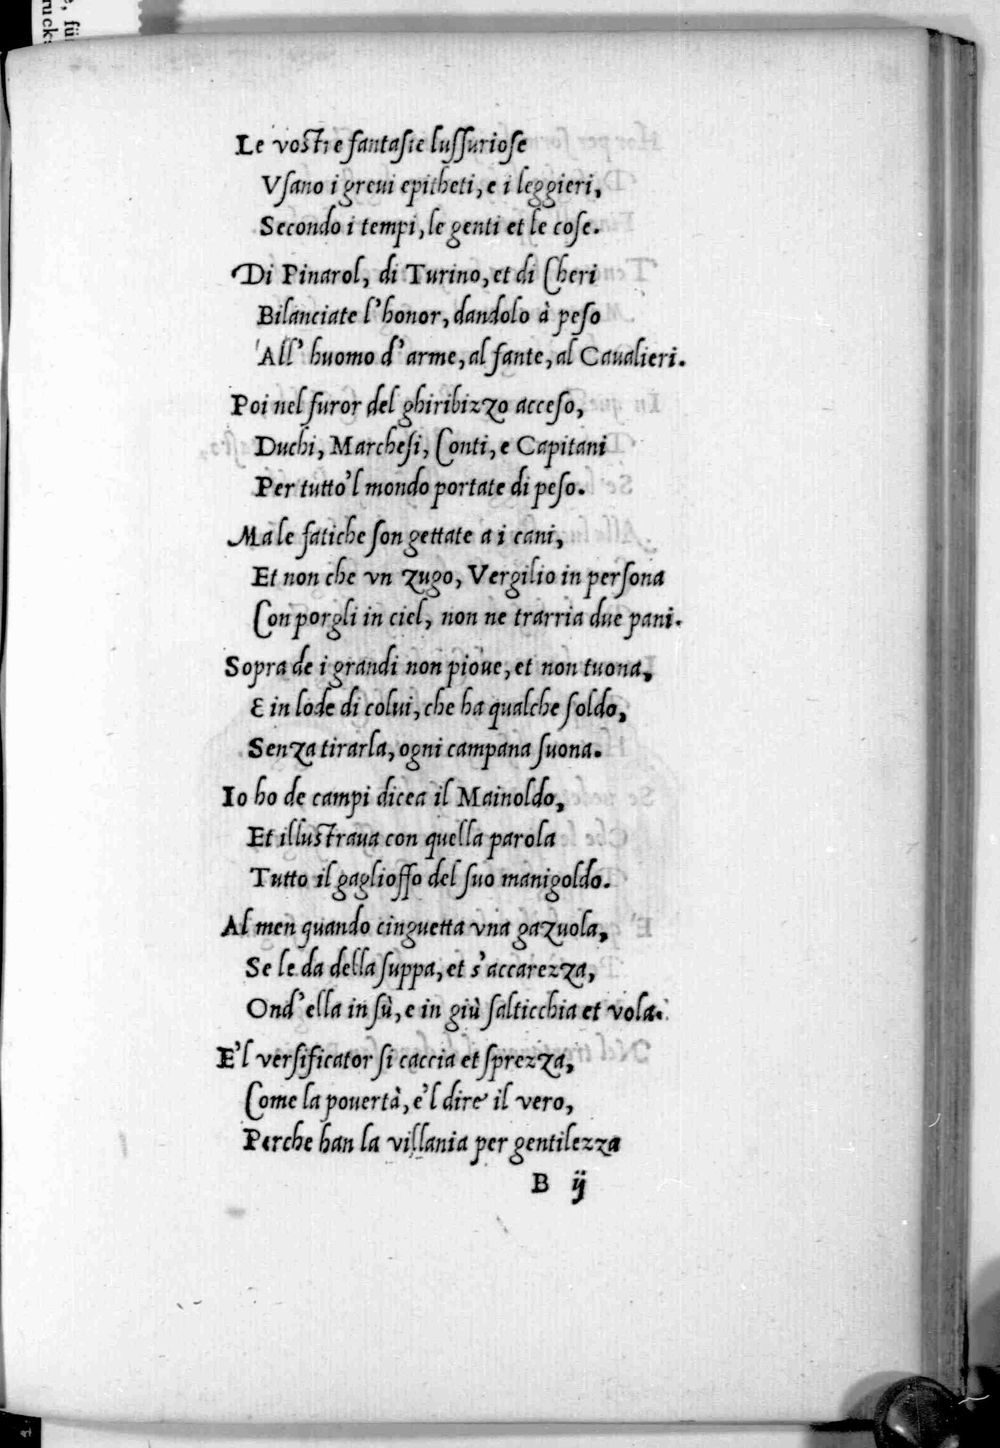 Le vostre fantasie lussuriose
Vsano i greui epitheti, e i leggieri,
Secondo i tempi, le genti et le cose.
Di Pinarol, di Turino, et di Cheri
Bilanciate l'honor, dandolo à peso
All' huomo d'arme, al fante, al Caualieri.
Poi nel furor del ghiribizzo acceso,
Duchi, Marchesi, Conti, e Capitani
Per tutto'l mondo portate di peso.
Ma le fatiche son gettate a i cani,
Et non che vn zugo, Vergilio in persona
Con porgli in ciel, non ne trarria due pani.
Sopra de i grandi non pioue, et non tuona,
E in lode di colui, che ha qualche soldo,
Senza tirarla, ogni campana suona.
Io ho de campi dicea il Mainoldo,
Et illustraua con quella parola
Tutto il gaglioffo del suo manigoldo.
Al men quando cinguetta vna gazuola,
Se le da della suppa, et s'accarezza,
Ond'ella in sù, e in giù salticchia et vola.
E'l versificator si caccia et sprezza,
Come la pouertà, e'l dire il vero,
Perche han la villania per gentilezza
B ij